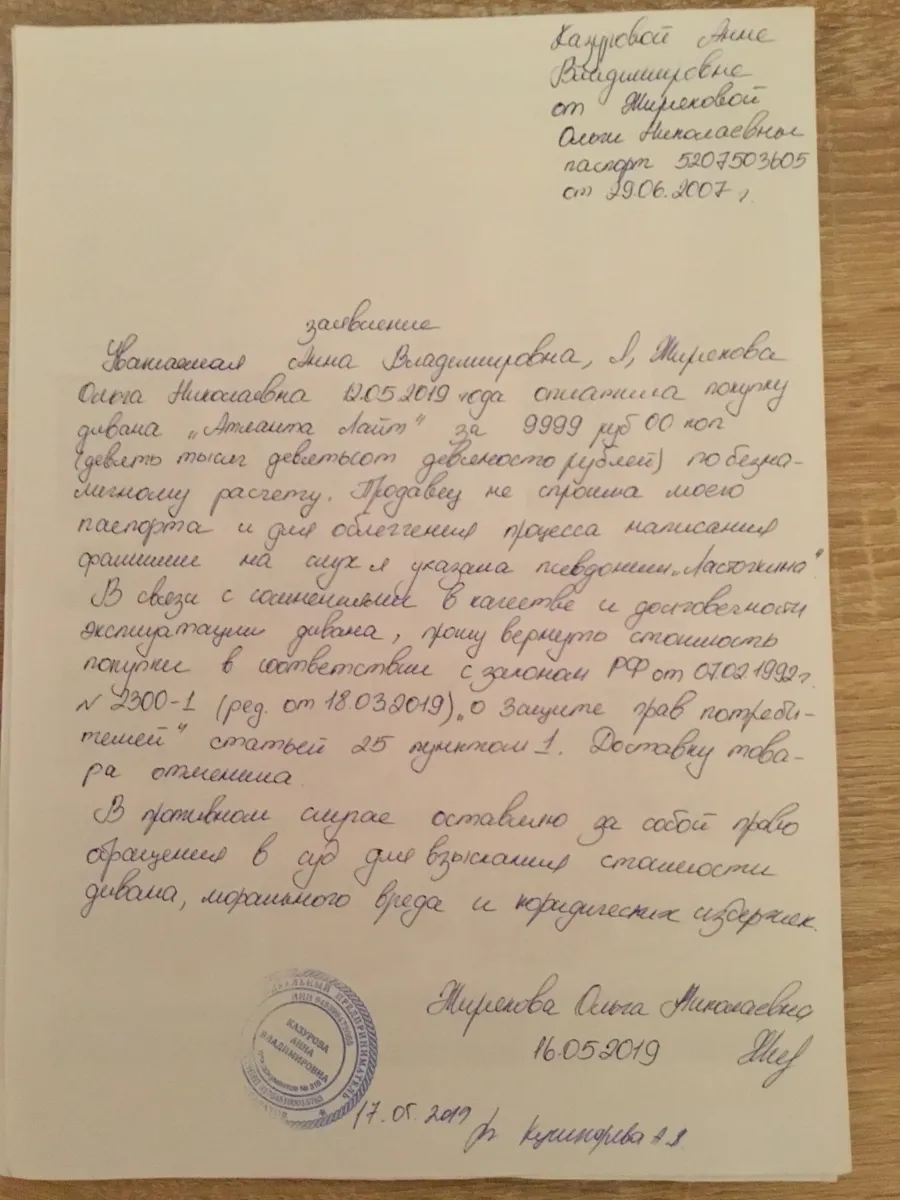 Казуровой Анне
Владимировне
от Жиряковой
Ольги Николаевны
паспорт 5207503605
от 29.06.2007 г.
заявление
Уважаемая Анна Владимировна, Я, Жирякова
Ольга Николаевна 12.05.2019 года оплатила покупку
дивана „Атланта Лайт" за 9999 руб 00 коп
(девять тысяч девятьсот девяносто рублей) по безна-
личному расчету. Продавец не спросила моего
паспорта и для облегчения процесса написания
фамилии на слух я указала псевдоним „Ласточкина"
В связи с сомнениями в качестве и долговечности
эксплуатации дивана, прошу вернуть стоимость
покупки в соответствии с законом РФ от 07.02.1992г.
N 2300-1 (ред. от 18.03.2019) „О Защите прав потреби-
телей" статьей 25 пунктом 1. Доставку това-
ра отменила
В противном случае оставляю за собой право
обращения в суд для взыскания стоимости
дивана, морального вреда и юридических издержек.
Жирякова Ольга Николаевна
16.05.2019
ПРЕДПРИНИМАТЕЛЬ
КАЗУРОВА
АННА
ВЛАДИМИРОВНА
для документов №
17.05.2019